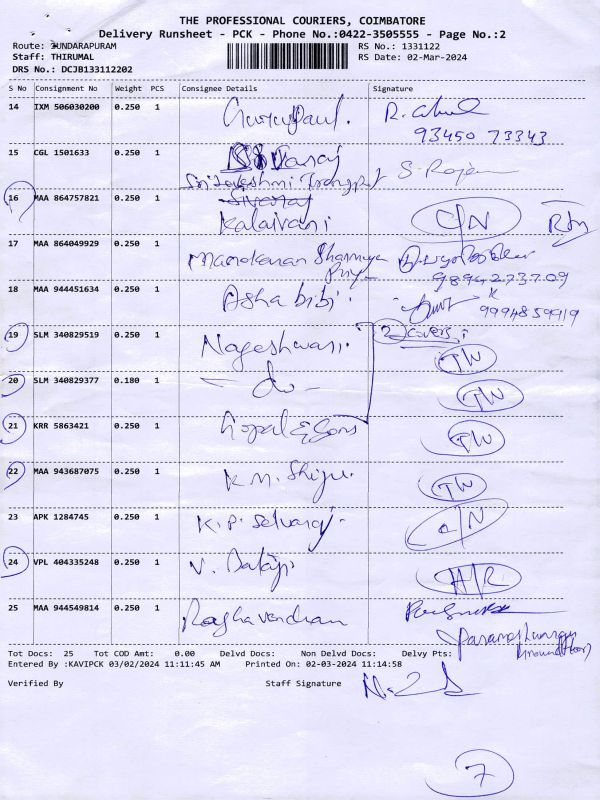 THE PROFESSIONAL COURIERS, COIMBATORE
Delivery Runsheet - PCK - Phone No.:0422-3505555 - Page No.:2
Route: SUNDARAPURAM RS No.: 1331122
Staff: THIRUMAL RS Date: 02-Mar-2024
DRS No.: DCJB133112202
S No Consignment No Weight PCS Consignee Details Signature
14 IXM 506030200 0.250 1 Gurupaul.
93450 73343
15 CGL 1501633 0.250 1
Sri Lakshmi Transport S. Rajan
16 MAA 864757821 0.250 1 Sivaraj
Kalaivani C/N
17 MAA 864049929 0.250 1 Manokaran Shanmuga Priya
9894273709
18 MAA 944451634 0.250 1 Asha bibi.
9994859919
19 SLM 340829519 0.250 1 Nageshwari. 2 covers
TW
20 SLM 340829377 0.180 1 - do - TW
21 KRR 5863421 0.250 1 Gopal & Sons TW
22 MAA 943687075 0.250 1 K.M. Shiju. TW
23 APK 1284745 0.250 1 K.P. Selvaraj. C/N
24 VPL 404335248 0.250 1 V. Balaji H/R
25 MAA 944549814 0.250 1 Raghavendran
Ground floor)
Tot Docs: 25 Tot COD Amt: 0.00 Delvd Docs: Non Delvd Docs: Delvy Pts:
Entered By :KAVIPCK 03/02/2024 11:11:45 AM Printed On: 02-03-2024 11:14:58
Verified By Staff Signature
7